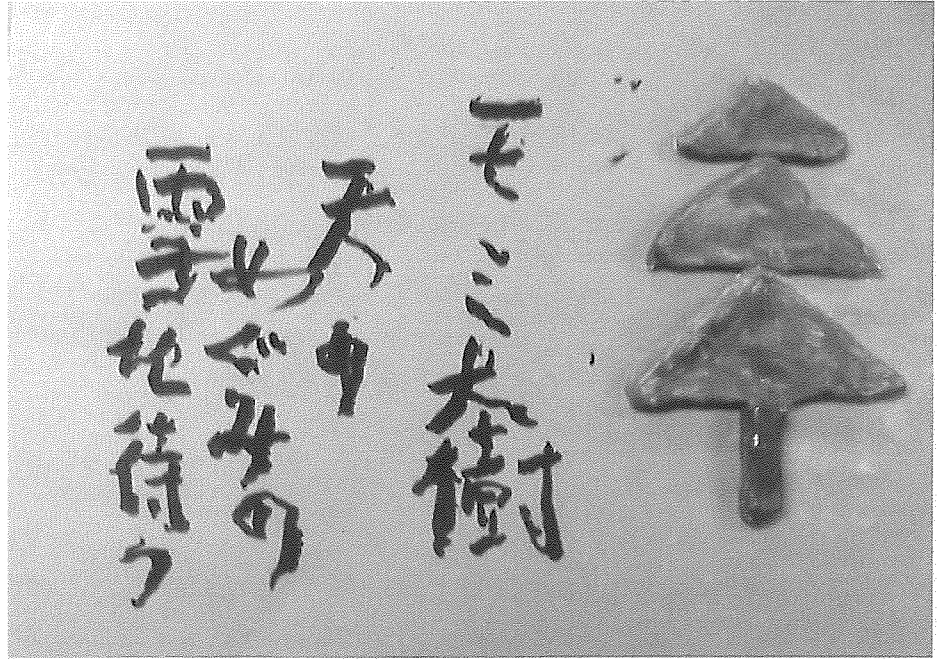 モミ大樹
天
めぐみの
雪を待つ